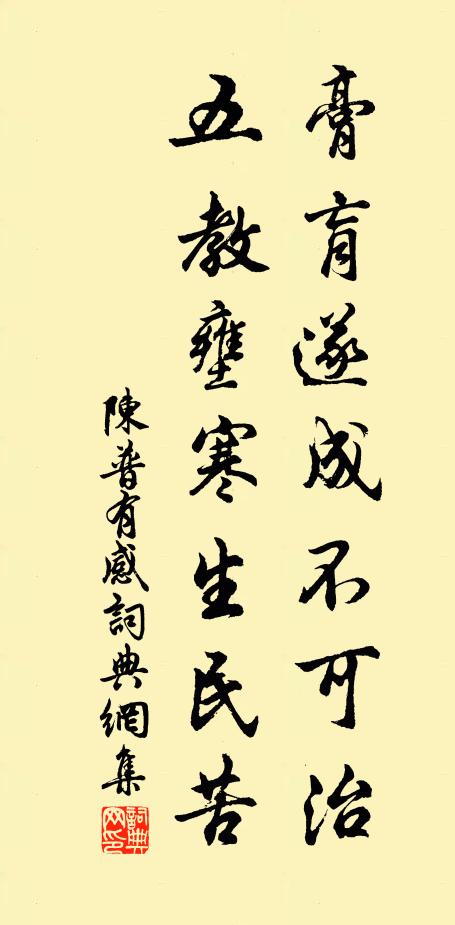 膏肓遂成不可治
五教壅寒生民苦
陳普有感詞典網集
詞典网印